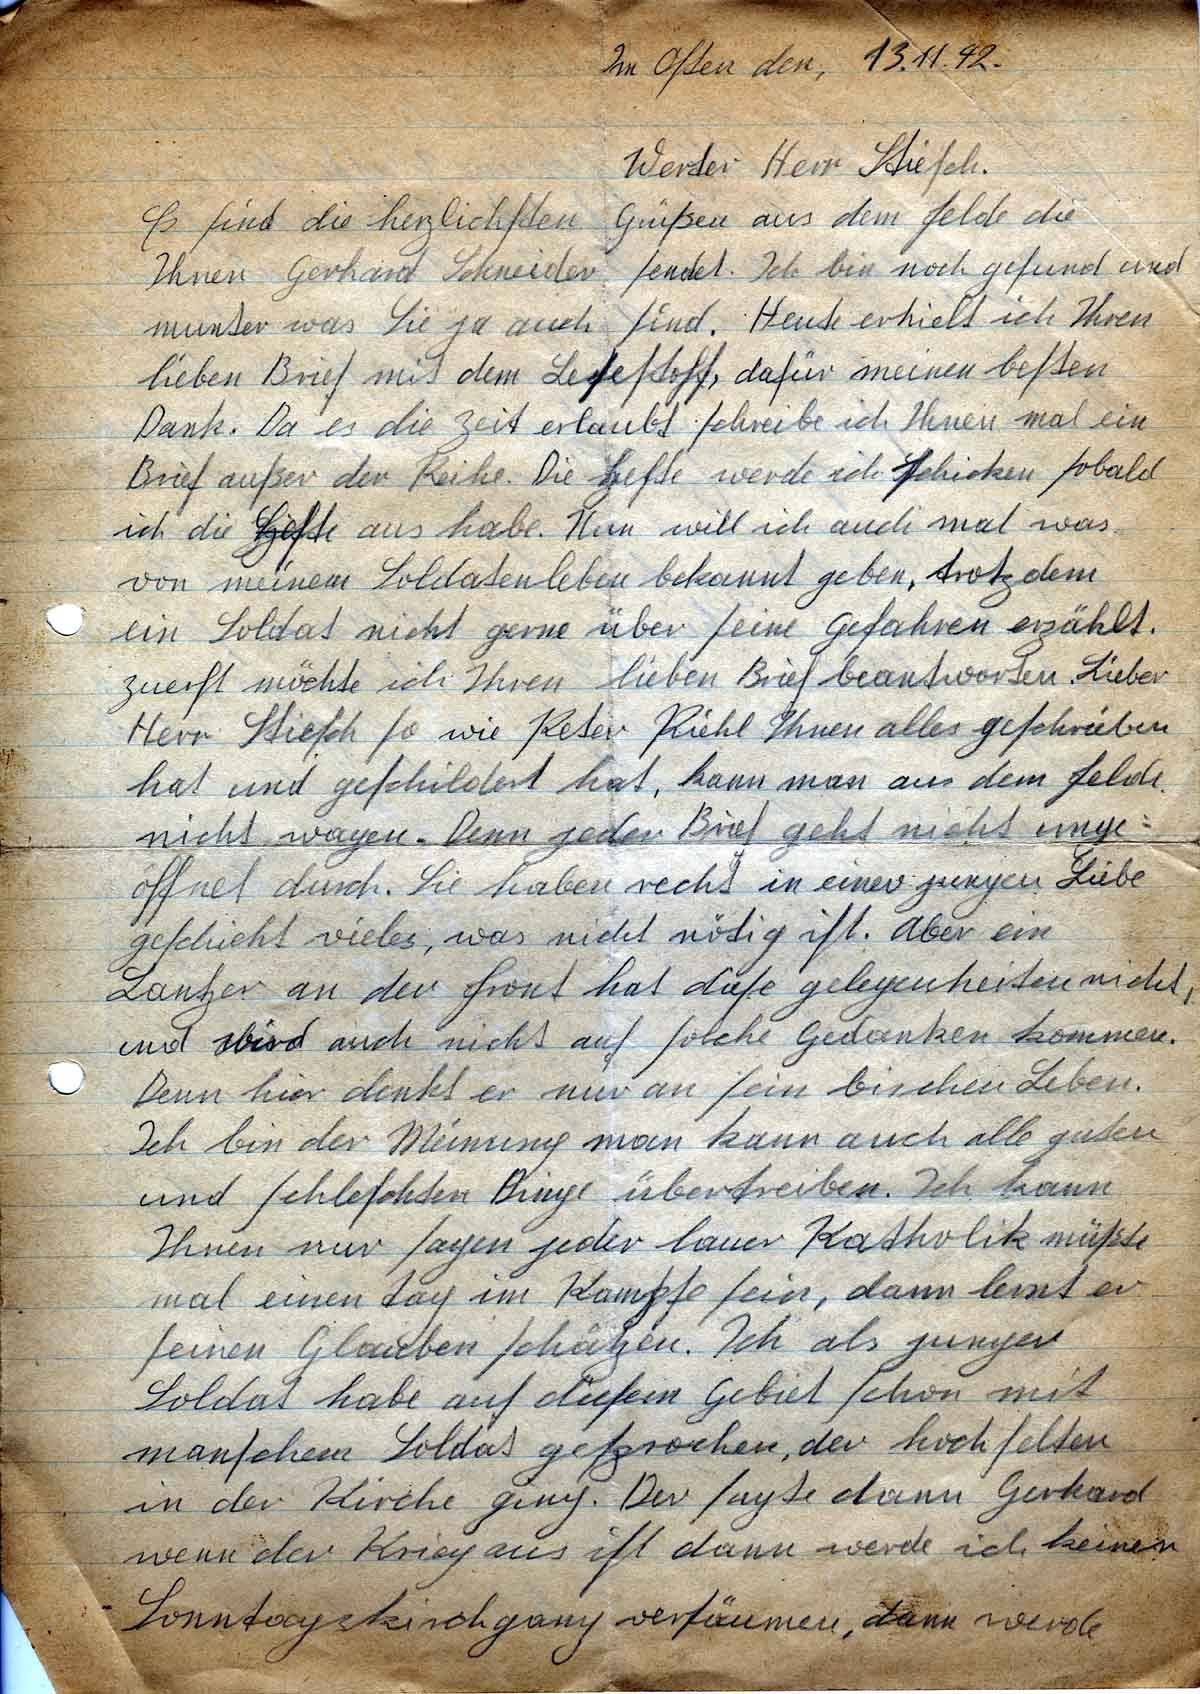 Im Osten den, 13.11.42.
Werter Herr Stiesch.
Es sind die herzlichsten Grüßen aus dem felde die
Ihnen Gerhard Schneider sendet. Ich bin noch gesund und
munter was Sie ja auch sind. Heute erhielt ich Ihren
lieben Brief mit dem Lesestoff, dafür meinen besten
Dank. Da es die Zeit erlaubt schreibe ich Ihnen mal ein
Brief außer der Reihe. Die Hefte werde ich schicken sobald
ich die Hefte aus habe. Nun will ich auch mal was
von meinem Soldatenleben bekannt geben, trotzdem
ein Soldat nicht gerne über seine Gefahren erzählt.
zuerst möchte ich Ihren lieben Brief beantworten. Lieber
Herr Stiesch so wie Peter Riehl Ihnen alles geschrieben
hat und geschildert hat, kann man aus dem felde
nicht wagen. Denn jeder Brief geht nicht unge=
öffnet durch. Sie haben recht in einer jungen Liebe
geschieht vieles, was nicht nötig ist. Aber ein
Lantzer an der front hat diese gelegenheiten nicht,
und wird auch nicht auf solche Gedanken kommen.
Denn hier denkt er nur an sein bischen Leben.
Ich bin der Meinung man kann auch alle guten
und schleschten Dinge übertreiben. Ich kann
Ihnen nur sagen jeder lauer Katholik müßte
mal einen tag im Kampfe sein, dann lernt er
seinen Glauben schätzen. Ich als junger
Soldat habe auf diesem Gebiet schon mit
manschem Soldat gesprochen, der hoch selten
in der Kirche ging. Der sagte dann Gerhard
wenn der Krieg aus ist dann werde ich keinen
Sonntagskirchgang versäumen, dann werde